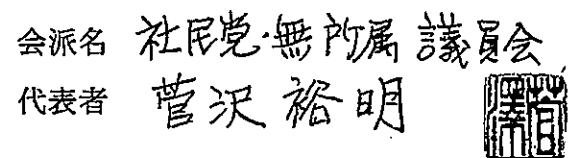 会派名 社民党・無所属議員会
代表者 菅沢裕明
菅澤